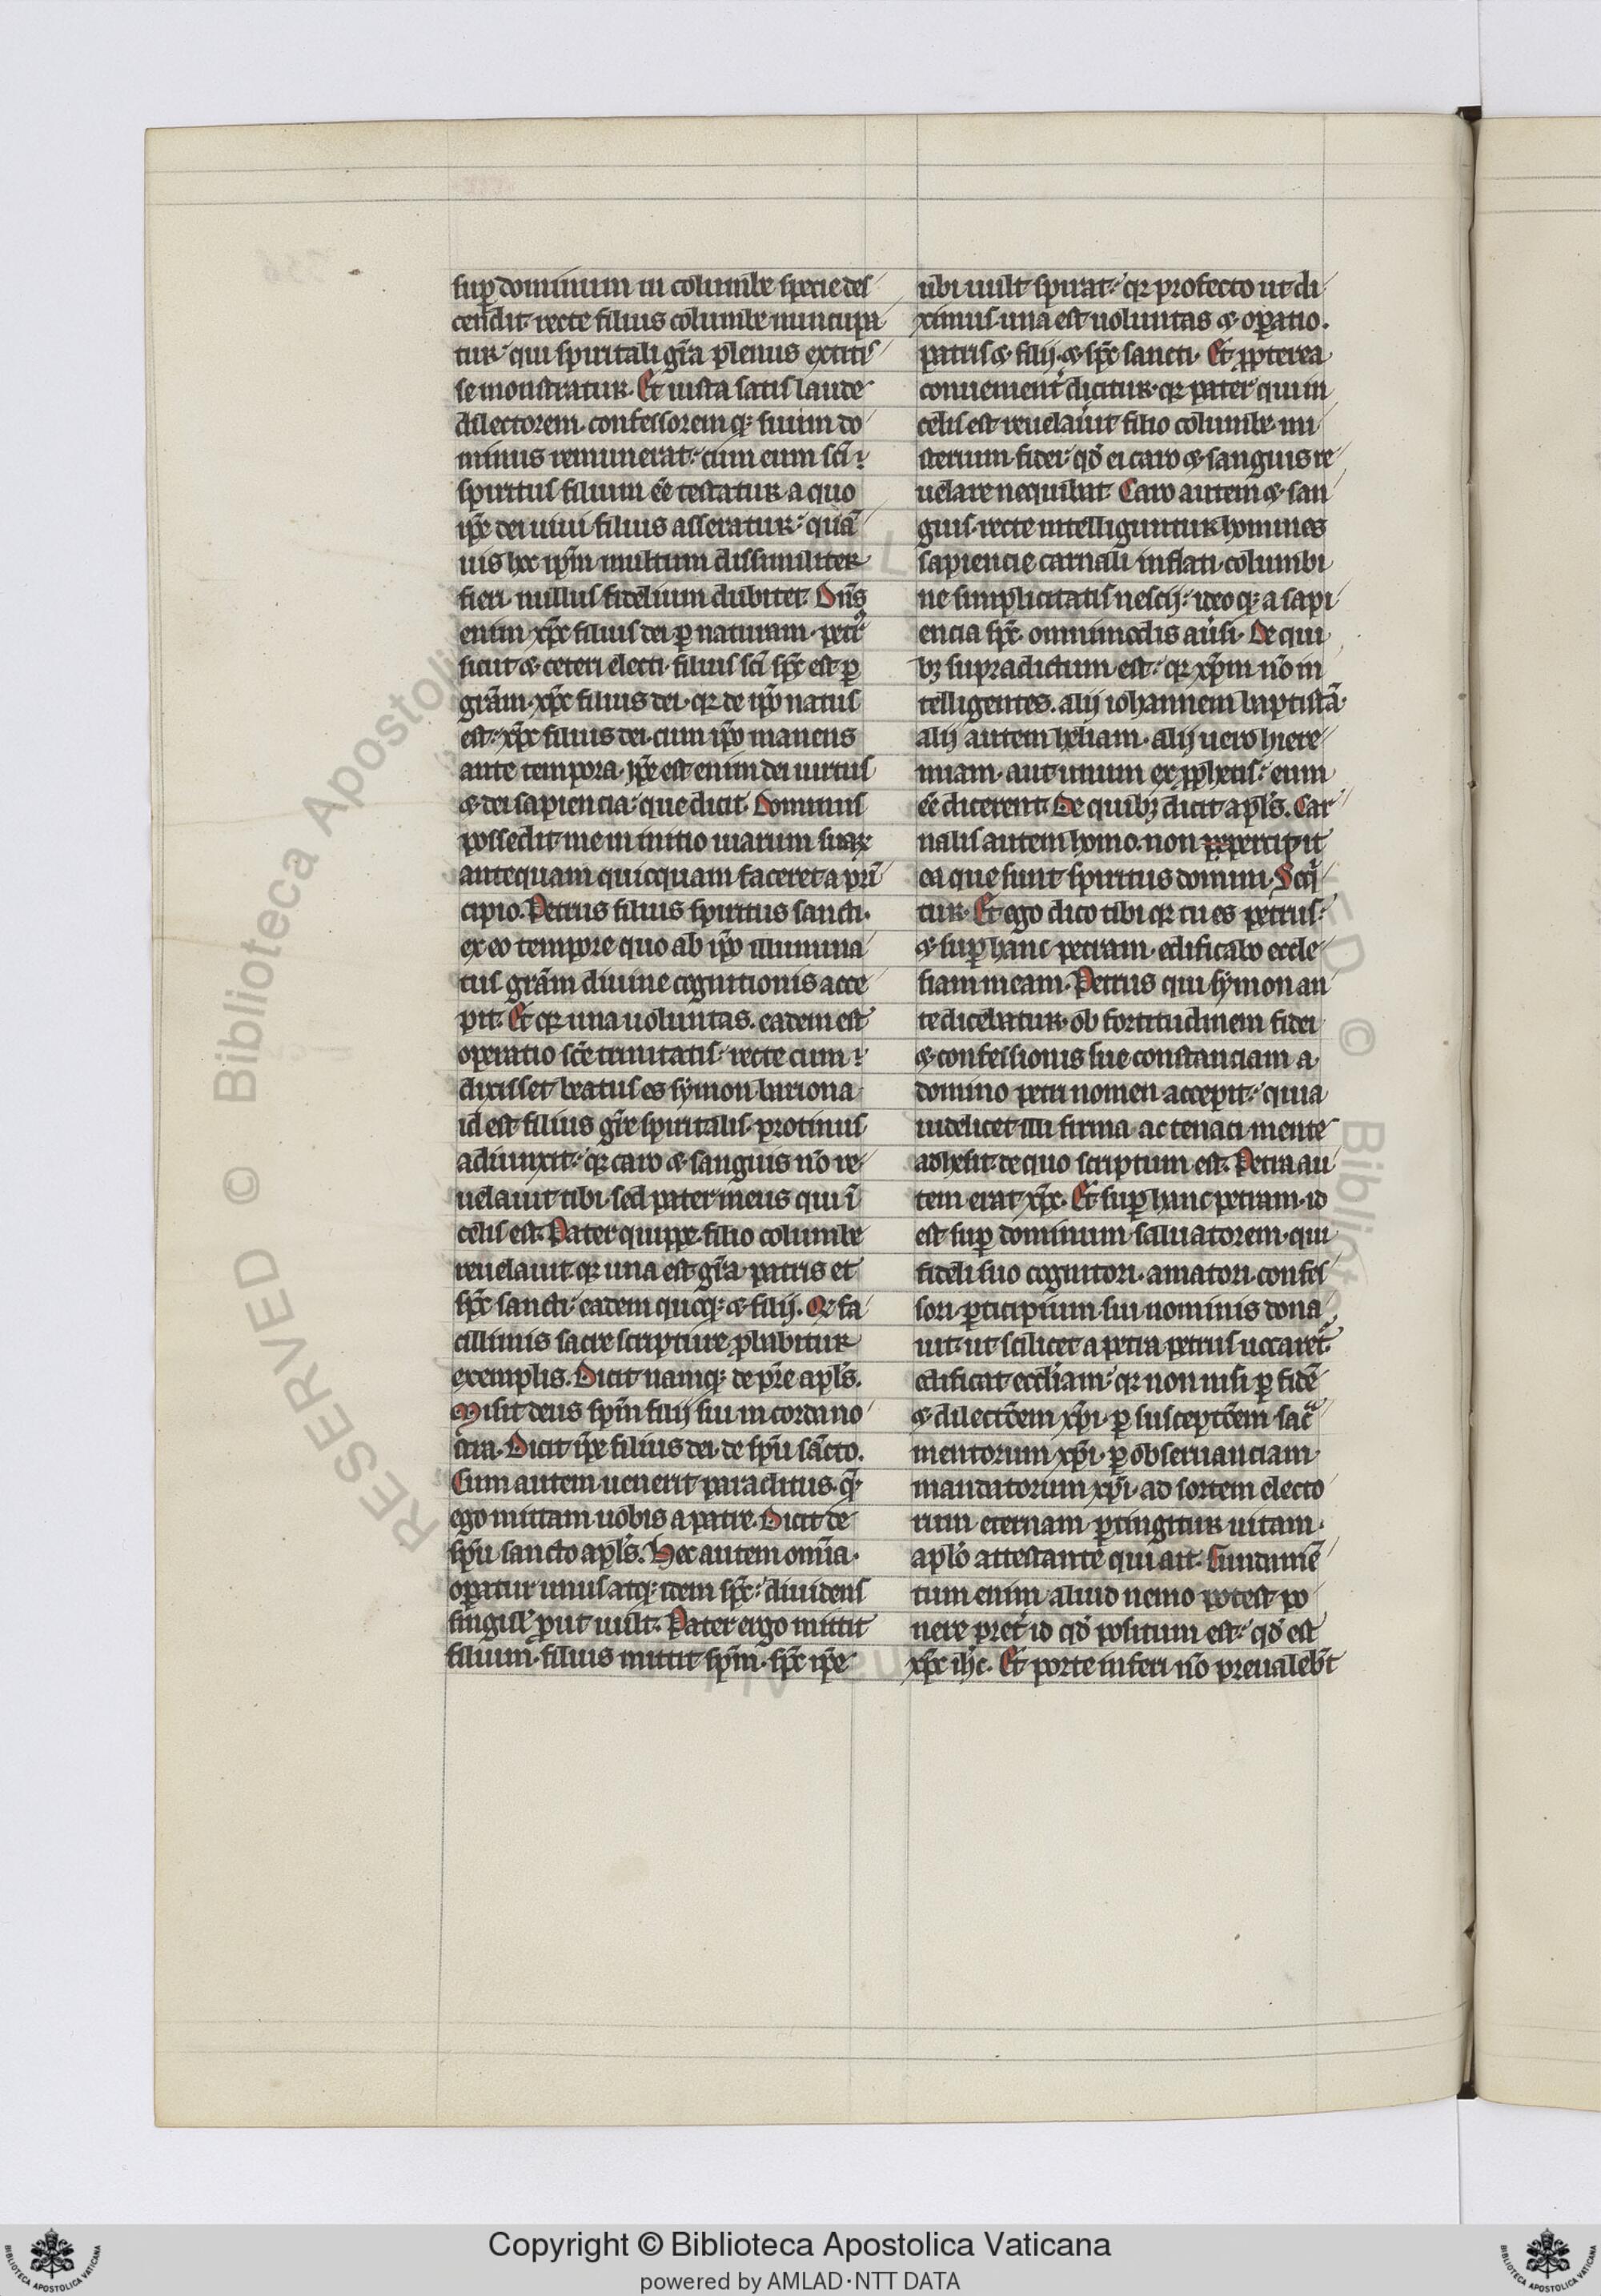 sup̱ dominum in columbe specie des
cendit· recte filius columbe nuncupa
tur· qui spiritali gr̄a plenus extitis
se monstratur. Et iusta satis laude
dilectorem· confessoremq; suum do
minus remunerat· cum eum sc̄i
spiritus filium ēe testatur a quo
ip̄e dei uiui filius asseratur· quā
uis hec ip̄m multum dissimiliter
fieri· nullus fidelium dubitet. Dn̄s
enim xp̄c filius dei ꝑ naturam· petr᷒
sicut & ceteri electi· filius sc̄i sp̄c est ꝑ
grām· xp̄c filius dei· qꝛ de ip̄o natus
est· xp̄c filius dei· cum ip̄o manens
ante tempora· ip̄e est enim dei uirtus
& dei sapiencia· que dicit. Dominus
possedit me in initio uiarum suaꝝ
antequam quicquam faceret a prī
cipio. Petrus filius spiritus sancti·
ex eo tempore quo ab ip̄o illumina
tus grām diuine cognitionis acce
pit. Et qꝛ una uoluntas. eadem est
operatio sc̄e trinitatis· recte cum
dixisset beatus es symon bariona·
id est filius gr̄e spiritalis· protinus
adiunxit· qꝛ caro & sanguis nō re
uelauit tibi· sed pater meus qui ī
celis est. Pater quippe filio columbe
reuelauit· qꝛ una est gr̄a patris et
sp̄c sancti· eadem quoq; & filij. Qꝛ fa
cillimis sacre scripture ꝓbabitur
exemplis. Dicit namq; de p̄re apl̄s.
Misit deus sp̄m filij sui in corda no
stra. Dicit ip̄e filius dei· de sp̄u sancto.
Cum autem uenerit paraclitus. q̄
ego mittam uobis a patre. Dicit de
sp̄u sancto apl̄s. Hec autem omīa·
oꝑatur unus atq; idem sp̄c· diuidens
singul᷒ ꝓut uult. Pater ergo mittit
filium· filius mittit sp̄m· sp̄c ip̄e
ubi uult spirat· qꝛ profecto ut di
ximus· una est uoluntas & oꝑatio.
patris & filij & sp̄c sancti. Et ꝓpterea
conuenient᷒ dicitur· qꝛ pater qui in
celis est reuelauit filio columbe mi
sterium fidei· qd̄ ei caro & sanguis re
uelare nequibat. Caro autem & san
guis· recte intelliguntur homines
sapiencie carnali inflati· columbi
ne simplicitatis nescij· ideoq; a sapi
encia sp̄c omnimodis au᷒si. De qui
bꝫ supradictum est· qꝛ xp̄m nō in
telligentes. alij iohannem baptistā·
alij autem heliam· alij uero hiere
miam· aut unum ex ꝓphetis· eum
ēe dicerent. De quibꝫ dicit apl̄s. Car
nalis autem homo· non percipit
ea que sunt spiritus domini. Seqⁱ
tur. Et ego dico tibi qꝛ tu es petrus·
& suꝑ hanc petram· edificabo eccle
siam meam. Petrus qui symon an
te dicebatur· ob fortitudinem fidei
& confessionis sue constanciam a
domino petri nomen accepit· quia
uidelicet illi firma ac tenaci mente
adhesit· de quo scriptum est. Petra au
tem erat xp̄c. Et suꝑ hanc petram· id
est suꝑ dominum saluatorem· qui
fideli suo cognitori· amatori· confes
sori· ꝑticipium sui nominis dona
uit· ut scilicet a petra petrus uocaret᷒
edificat᷒ ecclīam· qꝛ non nisi ꝑ fidē
& dilectōem xp̄i· ꝑ susceptōem sacᵃ
mentorum xp̄i· ꝑ obseruanciam
mandatorum xp̄i· ad sortem electo
rum eternam ꝑtingitur uitam·
apl̄o attestante qui ait. Fundamē
tum enim aliud nemo potest po
nere pret᷒ id qd̄ positum est· qd̄ est
xp̄c ih̄c. Et porte inferi nō preualeb̄t
Copyright © Biblioteca Apostolica Vaticana
powered by AMLAD·NTT DATA